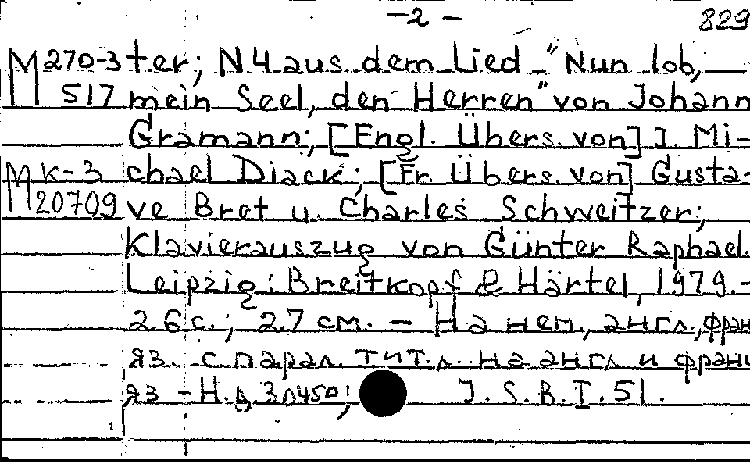 -2-
829
M 270-3 ter; N 4 aus dem Lied "Nun lob,
517 mein Seel, den Herren" von Johann
Gramann; [Engl. Übers. von] J. Mi-
M K-3 chael Diack; [Fr Übers. von] Gusta-
20709 ve Bret u. Charles Schweitzer;
Klavierauszug von Günter Raphael.
Leipzig: Breitkopf & Härtel, 1979.-
26 с.; 27 см. - На нем., англ., фран
яз. с парал. тит. л. на англ и франц
яз - Н.д. J.S.B.I.51.